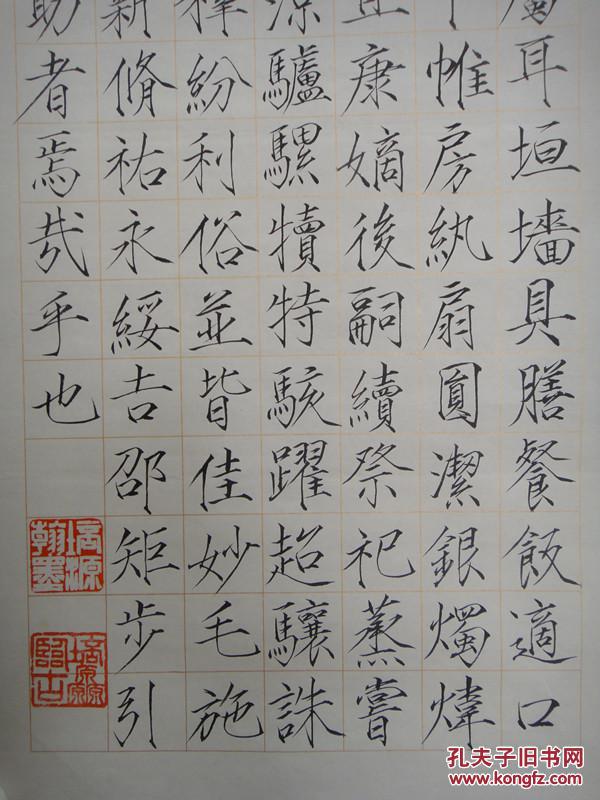 耳垣墻具膳餐飯適口
巾帷房紈扇圓潔銀燭煒
且康嫡後嗣續祭祀蒸嘗
凉驢騾犢特駭躍超驤誅
釋紛利俗並皆佳妙毛施
薪脩祐永綏吉邵矩步引
助者焉哉乎也
翰墨
臨古
孔夫子旧书网
www.kongfz.com